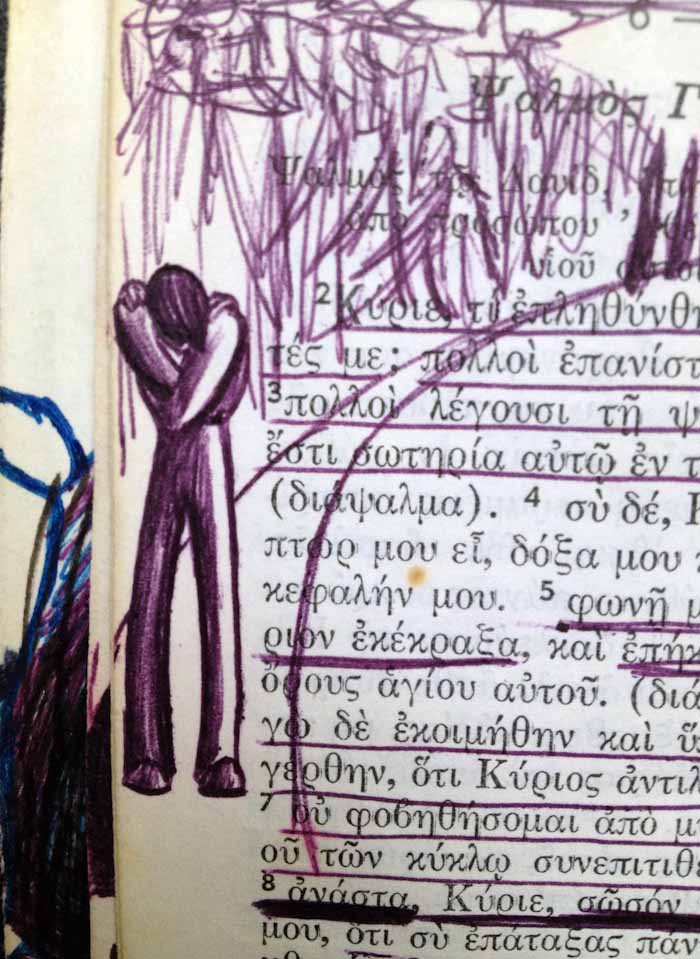 6
Ψαλμὸς Γ
Ψαλμὸς τῷ Δαυίδ,
ἀπὸ προσώπου
υἱοῦ
²Κύριε, τί ἐπληθύνθη
τές με; πολλοὶ ἐπανίστ
³πολλοὶ λέγουσι τῇ ψ
ἔστι σωτηρία αὐτῷ ἐν τ
(διάψαλμα). ⁴ σὺ δέ, Κ
πτωρ μου εἶ, δόξα μου
κεφαλήν μου. ⁵ φωνῇ μ
ριον ἐκέκραξα, καὶ ἐπήκ
ὄρους ἁγίου αὐτοῦ. (διά
γὼ δὲ ἐκοιμήθην καὶ ὕ
γέρθην, ὅτι Κύριος ἀντιλ
⁷ οὐ φοβηθήσομαι ἀπὸ μ
οῦ τῶν κύκλῳ συνεπιτιθε
⁸ ἀνάστα, Κύριε, σῶσόν
μου, ὅτι σὺ ἐπάταξας πάν